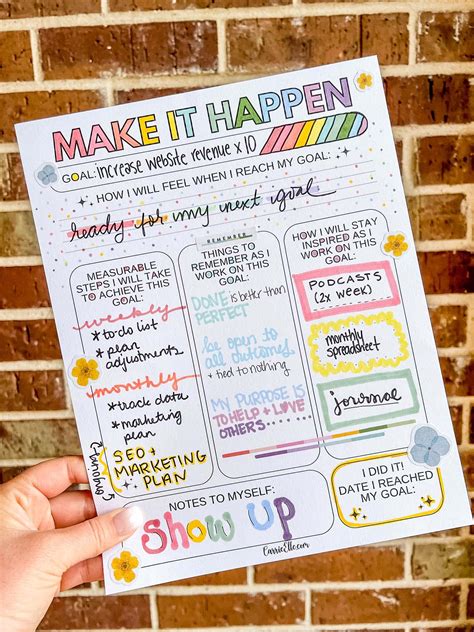 MAKE IT HAPPEN
GOAL: increase website revenue x 10
HOW I WILL FEEL WHEN I REACH MY GOAL:
ready for my next goal
MEASURABLE
STEPS I WILL TAKE
TO ACHIEVE THIS
GOAL:
weekly
* to do list
* plan
adjustments
monthly
* track data
* marketing
plan
ongoing
SEO +
MARKETING
PLAN
REMEMBER
THINGS TO
REMEMBER AS I
WORK ON THIS
GOAL:
DONE is better than
PERFECT
be open to
all outcomes
* tied to nothing
MY PURPOSE IS
TO HELP + LOVE
OTHERS.....
HOW I WILL STAY
INSPIRED AS I
WORK ON THIS
GOAL:
PODCASTS
(2x week)
monthly
spreadsheet
journal
NOTES TO MYSELF:
Show UP
CarrieElle.com
I DID IT!
DATE I REACHED
MY GOAL: